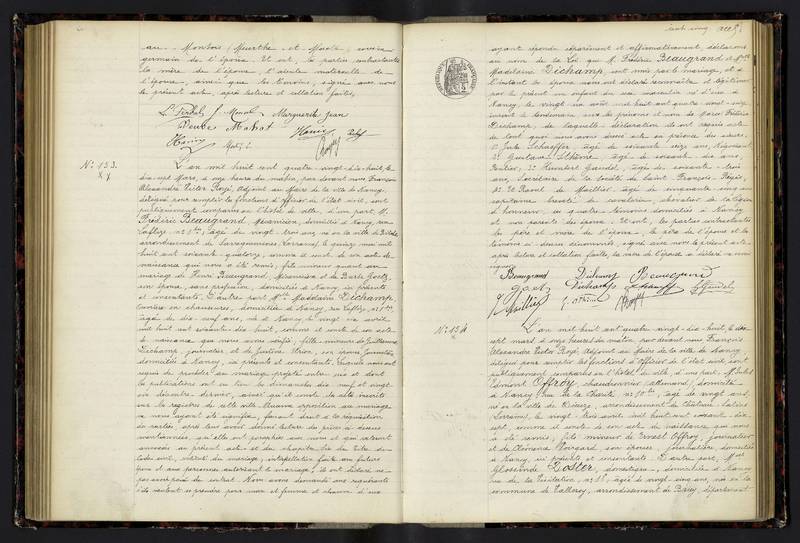 au Montois (Meurthe-et-Moselle), cousin
germain de l'épouse. Et ont, les parties contractantes
la mère de l'épouse, l'aïeule maternelle de
l'épouse, ainsi que les témoins, signé avec nous
le présent acte, après lecture et collation faites.
Marguerite Jean
Veuve Mahot
N° 153.
L'an mil huit cent quatre-vingt-dix-huit, le
dix-sept Mars, à onze heures du matin, par devant nous François
Alexandre Victor Rozé, Adjoint au Maire de la ville de Nancy,
délégué pour remplir les fonctions d'officier de l'état civil, ont
publiquement comparu en l'hôtel de ville, d'une part, M.
Frédéric Beaugrand, Mécanicien, domicilié à Nancy, rue
âgé de vingt-trois ans, né en la ville de
arrondissement de Sarreguemines (Lorraine), le quinze mai mil
huit cent soixante-quatorze, comme il conste de son acte de
naissance qui nous a été remis, fils mineur quant au
mariage de Henri Beaugrand, Mécanicien et de Barbe Goetz,
son épouse, sans profession, domiciliés à Nancy, ici présents
et consentants. D'autre part Melle Madelaine Dichamp,
ouvrière en chaussures, domiciliée à Nancy, rue
âgée de dix-neuf ans, née à Nancy, le vingt six avril
mil huit cent soixante-dix-huit, comme il conste de son acte
de naissance que nous avons vérifié, fille mineure de Guillaume
Dichamp, journalier, et de Justine son épouse, journalière,
domiciliés à Nancy, ici présents et consentants. Lesquels nous ont
requis de procéder au mariage projeté entre eux et dont
les publications ont eu lieu les dimanches dix-neuf et vingt-
six décembre dernier, ainsi qu'il conste des actes inscrits
sur les registres de cette ville. Aucune opposition au mariage
ne nous ayant été signifiée, faisant droit à la réquisition
des parties, après leur avoir donné lecture des pièces ci-dessus
mentionnées, qu'elles ont paraphées avec nous et qui restent
annexées au présent acte et du chapitre six du titre du
code civil, intitulé du mariage, interpellation faite aux futurs
époux et aux personnes autorisant le mariage, ils ont déclaré ne
pas avoir passé de contrat. Nous avons demandé aux requérants
s'ils veulent se prendre pour mari et femme et chacun d'eux
ayant répondu séparément et affirmativement, déclarons
au nom de la Loi que M. Frédéric Beaugrand et Melle
Madelaine Dichamp sont unis par le mariage, et à
l'instant les époux nous ont déclaré reconnaître et légitimer
par le présent un enfant du sexe masculin né d'eux à
Nancy, le vingt six août mil huit cent quatre-vingt-seize
inscrit le lendemain sous les prénoms et nom de Marie Frédéric
Dichamp, de laquelle déclaration ils ont requis acte.
De tout quoi nous avons dressé acte en présence des sieurs
1° Jules Schaeffer, âgé de soixante seize ans, Négociant
2° Gustave âgé de soixante-dix ans,
Rentier, 3° Hundert Gaindel, âgé de soixante-trois
ans, Secrétaire de la Société de Saint François Régis,
4° et Raoul de Maillier, âgé de cinquante cinq ans
capitaine breveté de cavalerie, chevalier de la légion
d'honneur, ces quatre témoins domiciliés à Nancy
et non parents des époux. Et ont, les parties contractantes
les père et mère de l'époux, le père de l'épouse et les
témoins ci-dessus dénommés, signé avec nous le présent acte
après lecture et collation faites, la mère de l'épouse a déclaré ne savoir
signer.
Beaugrand Dichamp Beaugrand
Goetz Dichamp Schaeffer Gaindel
N° 154
L'an mil huit cent quatre-vingt-dix-huit, le dix
sept mars à onze heures du matin, par devant nous François
Alexandre Victor Rozé, Adjoint au Maire de la ville de Nancy,
délégué pour remplir les fonctions d'officier de l'état civil, ont
publiquement comparu en l'hôtel de ville, d'une part, M. Jules
Edmont Offroy, chaudronnier (allemand), domicilié
à Nancy, rue de la Charité, âgé de vingt ans,
né en la ville de Delme, arrondissement de Château-Salins
(Lorraine), le vingt trois avril mil huit cent soixante-dix
sept, comme il conste de son acte de naissance qui nous
a été remis, fils mineur de Ernest Offroy, journalier
et de son épouse, journalière, domiciliés
à Nancy, ici présents et consentants. D'autre part, Melle
Glossinde Doster, domestique, domiciliée à Nancy
rue de la Visitation, âgée de vingt-cinq ans, née en la
commune de Valleroy, arrondissement de Briey, département